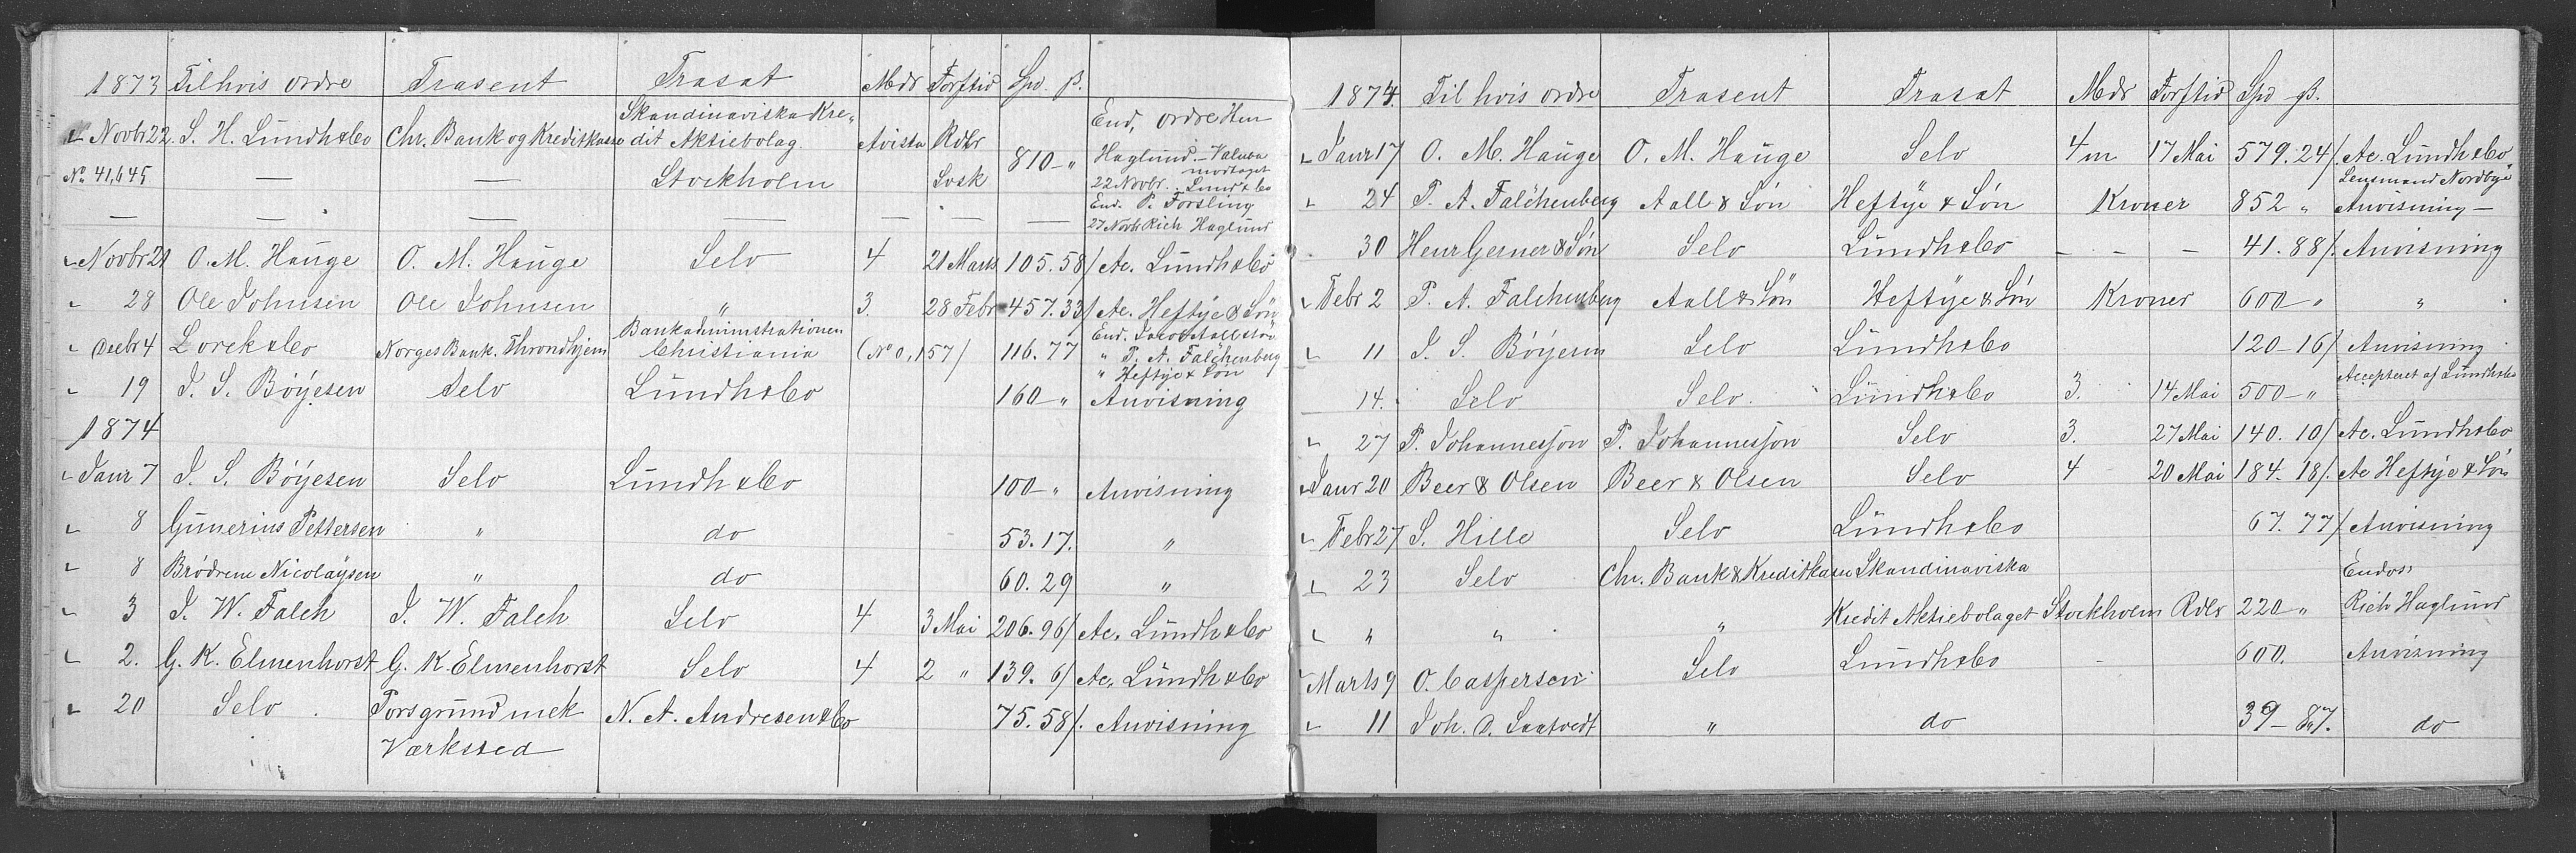 1873 Til hvis ordre Trasent Trasat Mdr Forftid Spd. ß.
Novbr 22. S. H. Lundh & Co Chr. Bank og Kreditkasse Skandinaviska Kre-
dit Aktiebolag Avista Rdlr 810 - " End, ordre Hen
No 41,645 — — Stockholm Svsk Haglund. - Valuta
modtaget
22 Novbr. Lundh & Co
— — — — — — — End. P. Forsling
27 Novbr Rich Haglund
Novbr 21 O. M. Hauge O. M. Hauge Selv 4 21 Marts 105. 58/ Ac. Lundh & Co
" 28 Ole Johnsen Ole Johnsen " 3. 28 Febr 457. 33/ Ac. Heftye & Søn
" Decbr 4 Lorck & Co Norges Bank. Throndhjem Bankadministrationen
Christiania (No 0,157) 116. 77 End. Jacob Aall & Søn
" P. A. Falchenberg
" Heftye & Søn
" 19 J. S. Bøyesen Selv Lundh & Co 160 - " Anvisning
1874
Janr 7 J. S. Bøyesen Selv Lundh & Co 100 - " Anvisning
" 8 Gunerius Pettersen " do 53. 17. "
" 8 Brødrene Nicolaysen " do 60. 29 "
" 3 J. W. Falch J. W. Falch Selv 4 3 Mai 206. 96/ Ac. Lundh & Co
" 2. G. K. Elmenhorst G. K. Elmenhorst Selv 4 2 " 139. 6/ Ac. Lundh & Co
" 20 Selv Porsgrund mek N. A. Andresen & Co 75. 58/. Anvisning
Værksted
1874. Til hvis ordre Trasent Trasat Mdr Forftid Spd ß.
Janr 17 O. M. Hauge O. M. Hauge Selv 4 m 17 Mai 579. 24/. Ac. Lundh & Co
Lensmand Nordbye
" 24 P. A. Falchenberg Aall & Søn Heftye & Søn Kroner 852 " Anvisning —
30 Henr Gerner & Søn Selv Lundh & Co - - - 41. 88/. Anvisning
Febr 2 P. A. Falchenberg Aall & Søn Heftye & Søn Kroner 600 " "
" 11 J. S. Bøyesen Selv Lundh & Co 120 - 16/ Anvisning
14. Selv Selv. Lundh & Co 3. 14 Mai 500 - " Accepteret af Lundh & Co
" 27 P. Johannessøn P. Johannessøn Selv 3. 27 Mai 140. 10/ Ac. Lundh & Co
Janr 20 Beer & Olsen Beer & Olsen Selv 4 20 Mai 184. 18/. Ac Heftye & Søn
" Febr 27 S. Hille Selv Lundh & Co 67. 77/ Anvisning
" 23 Selv Chr. Bank & Kreditkasse Skandinaviska Endos:
" " " " Kredit Aktiebolaget Stockholm Rdlr 220 - " Rich Haglund
Marts 9 O. Caspersen Selv Lundh & Co - 600. Anvisning
" 11 Joh. D. Saatvedt " do 39 - 87. do